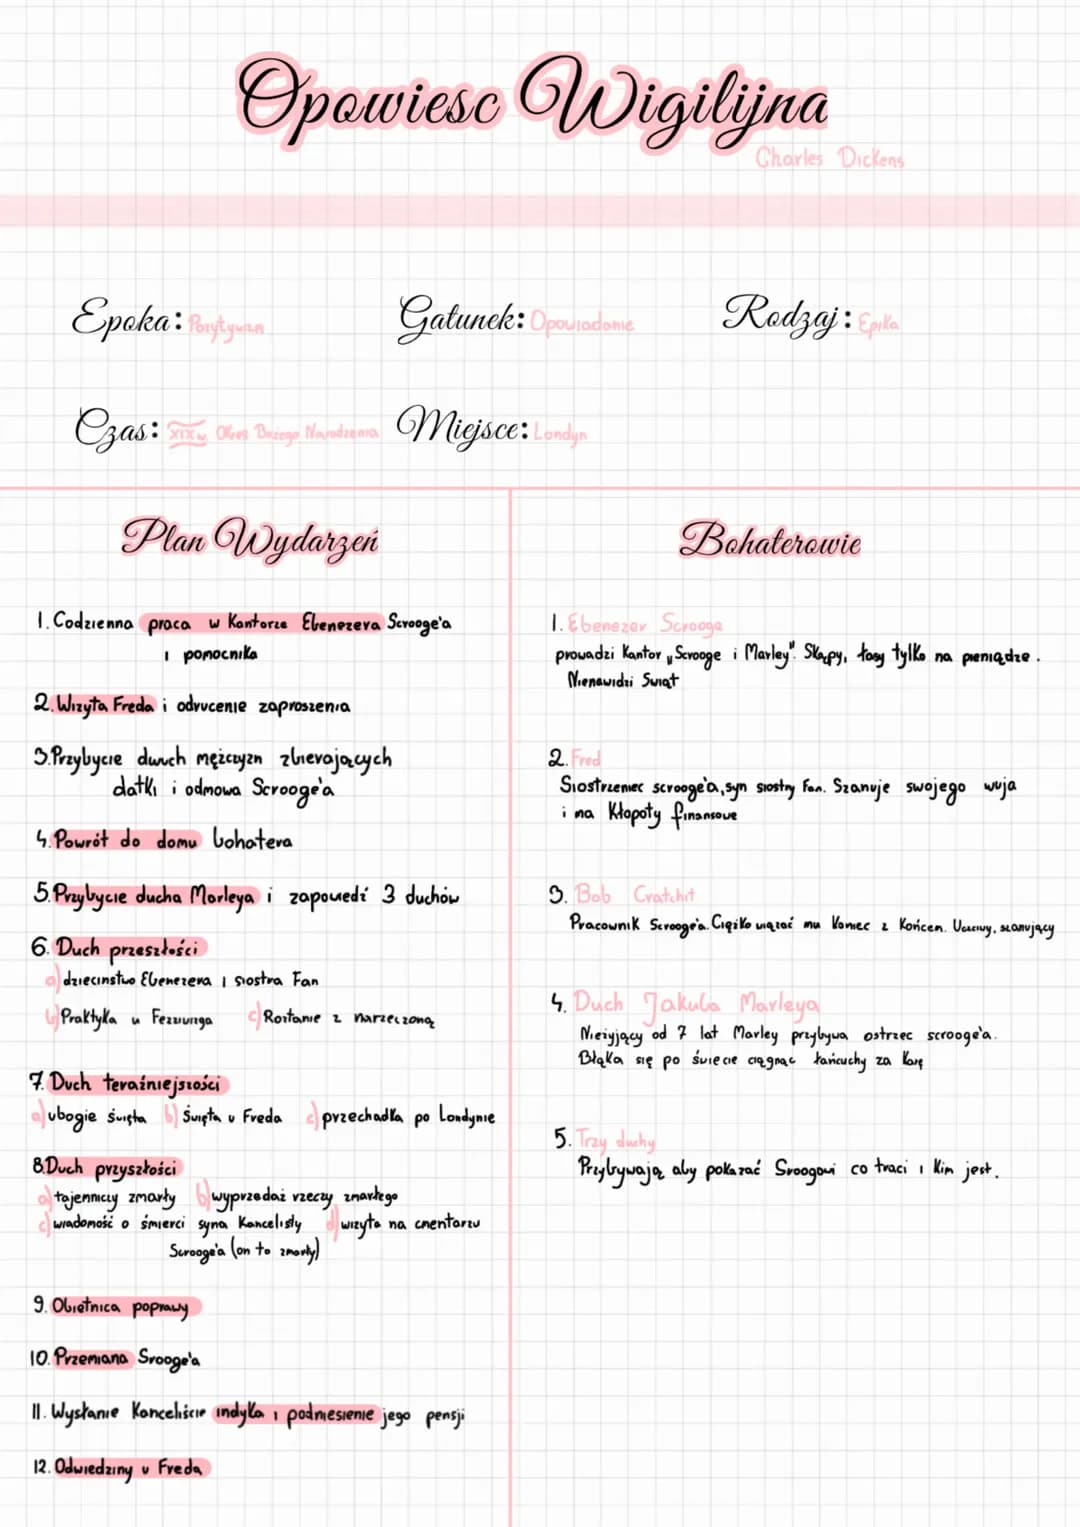 Opowiesc Wigilijna
Charles Dickens
Epoka: Pozytywizm
Gatunek: Opowiadanie
Rodzaj: Epika
Czas: XIX w Okres Bożego Narodzenia
Miejsce: Londyn
Plan Wydarzeń
1. Codzienna praca w Kantorze Ebenezera Scrooge'a
i pomocnika
2. Wizyta Freda i odrucenie zaproszenia
3. Przybycie dwuch mężczyzn zbierających
datki i odmowa Scrooge'a
4. Powrót do domu bohatera
5. Przybycie ducha Marleya i zapowiedź 3 duchów
6. Duch przeszłości
a) dziecinstwo Ebenezera i siostra Fan
b) Praktyka u Fezziwiga c) Roztanie z narzeczoną
7. Duch teraźniejszości
a) ubogie święta b) Święta u Freda c) przechadka po Londynie
8. Duch przyszłości
a) tajemniczy zmarły b) wyprzedaż rzeczy zmarłego
c) wiadomość o śmierci syna Kancelisty d) wizyta na cmentarzu
Scrooge'a (on to zmarły)
9. Obietnica poprawy
10. Przemiana Srooge'a
11. Wysłanie Kanceliście indyka i podniesienie jego pensji
12. Odwiedziny u Freda
Bohaterowie
1. Ebenezer Scrooge
prowadzi Kantor „Scrooge i Marley". Skąpy, łasy tylko na pieniądze.
Nienawidzi Świąt
2. Fred
Siostrzeniec scrooge'a, syn siostry Fan. Szanuje swojego wuja
i ma Kłopoty finansowe
3. Bob Cratchit
Pracownik Scrooge'a. Ciężko wiązać mu Koniec z Końcem. Uczciwy, szanujący
4. Duch Jakuba Marleya
Nieżyjący od 7 lat Marley przybywa ostrzec scrooge'a.
Błąka się po świecie ciągnąc łańcuchy za Karę
5. Trzy duchy
Przybywają aby pokazać Sroogowi co traci i Kim jest.